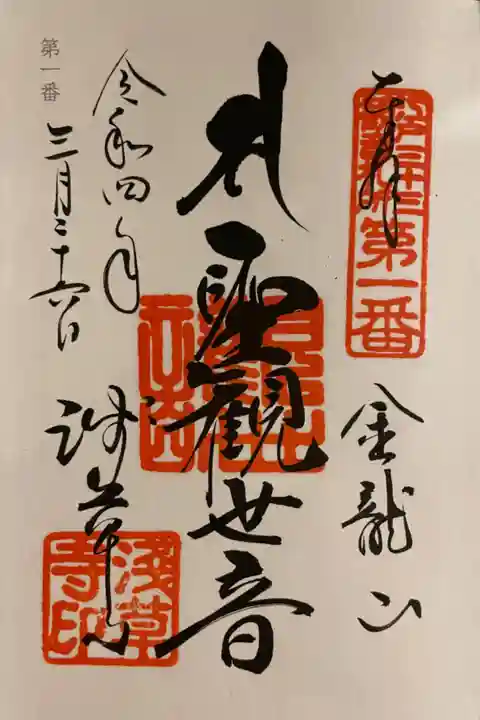 奉拝
第一番
金龍山
聖観世音
令和四年
三月二十六日
浅草寺
浅草
寺印
第一番